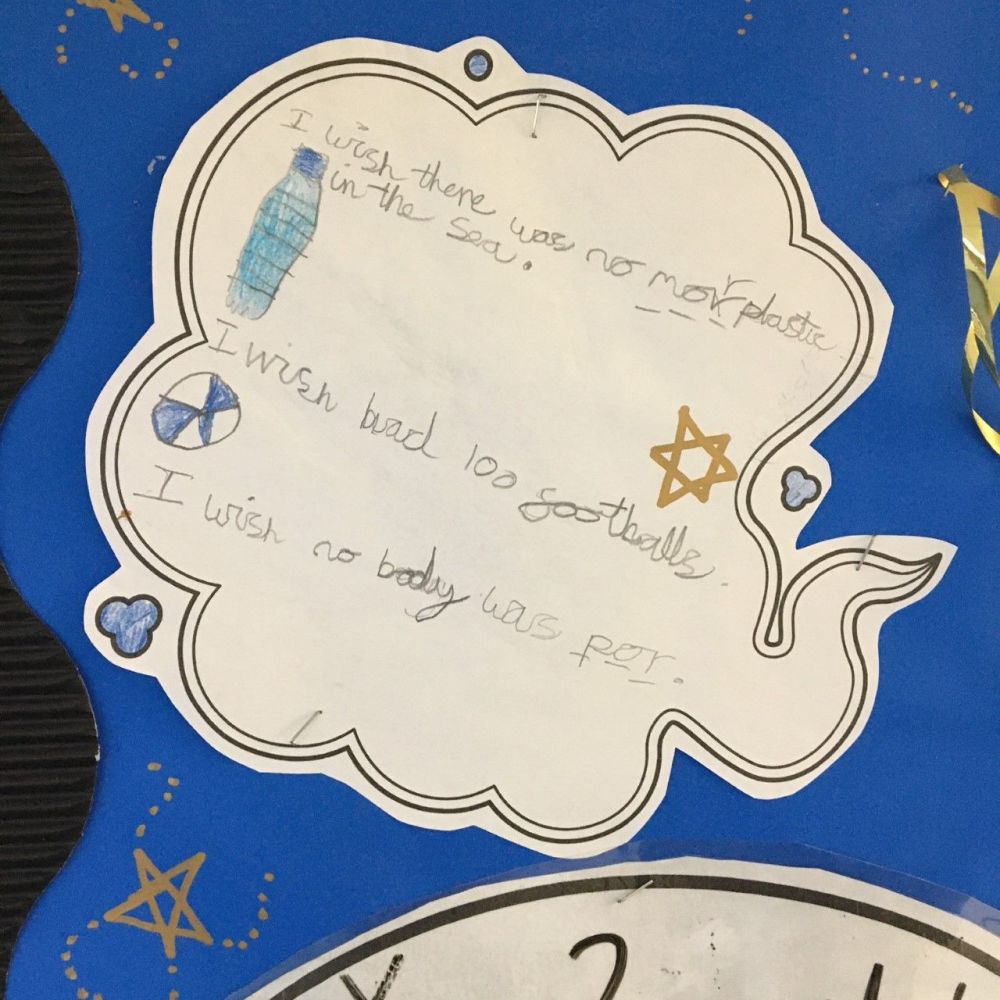 I wish there was no mor plastic
in the sea.
I wish buad 100 footballs.
I wish no body was por.